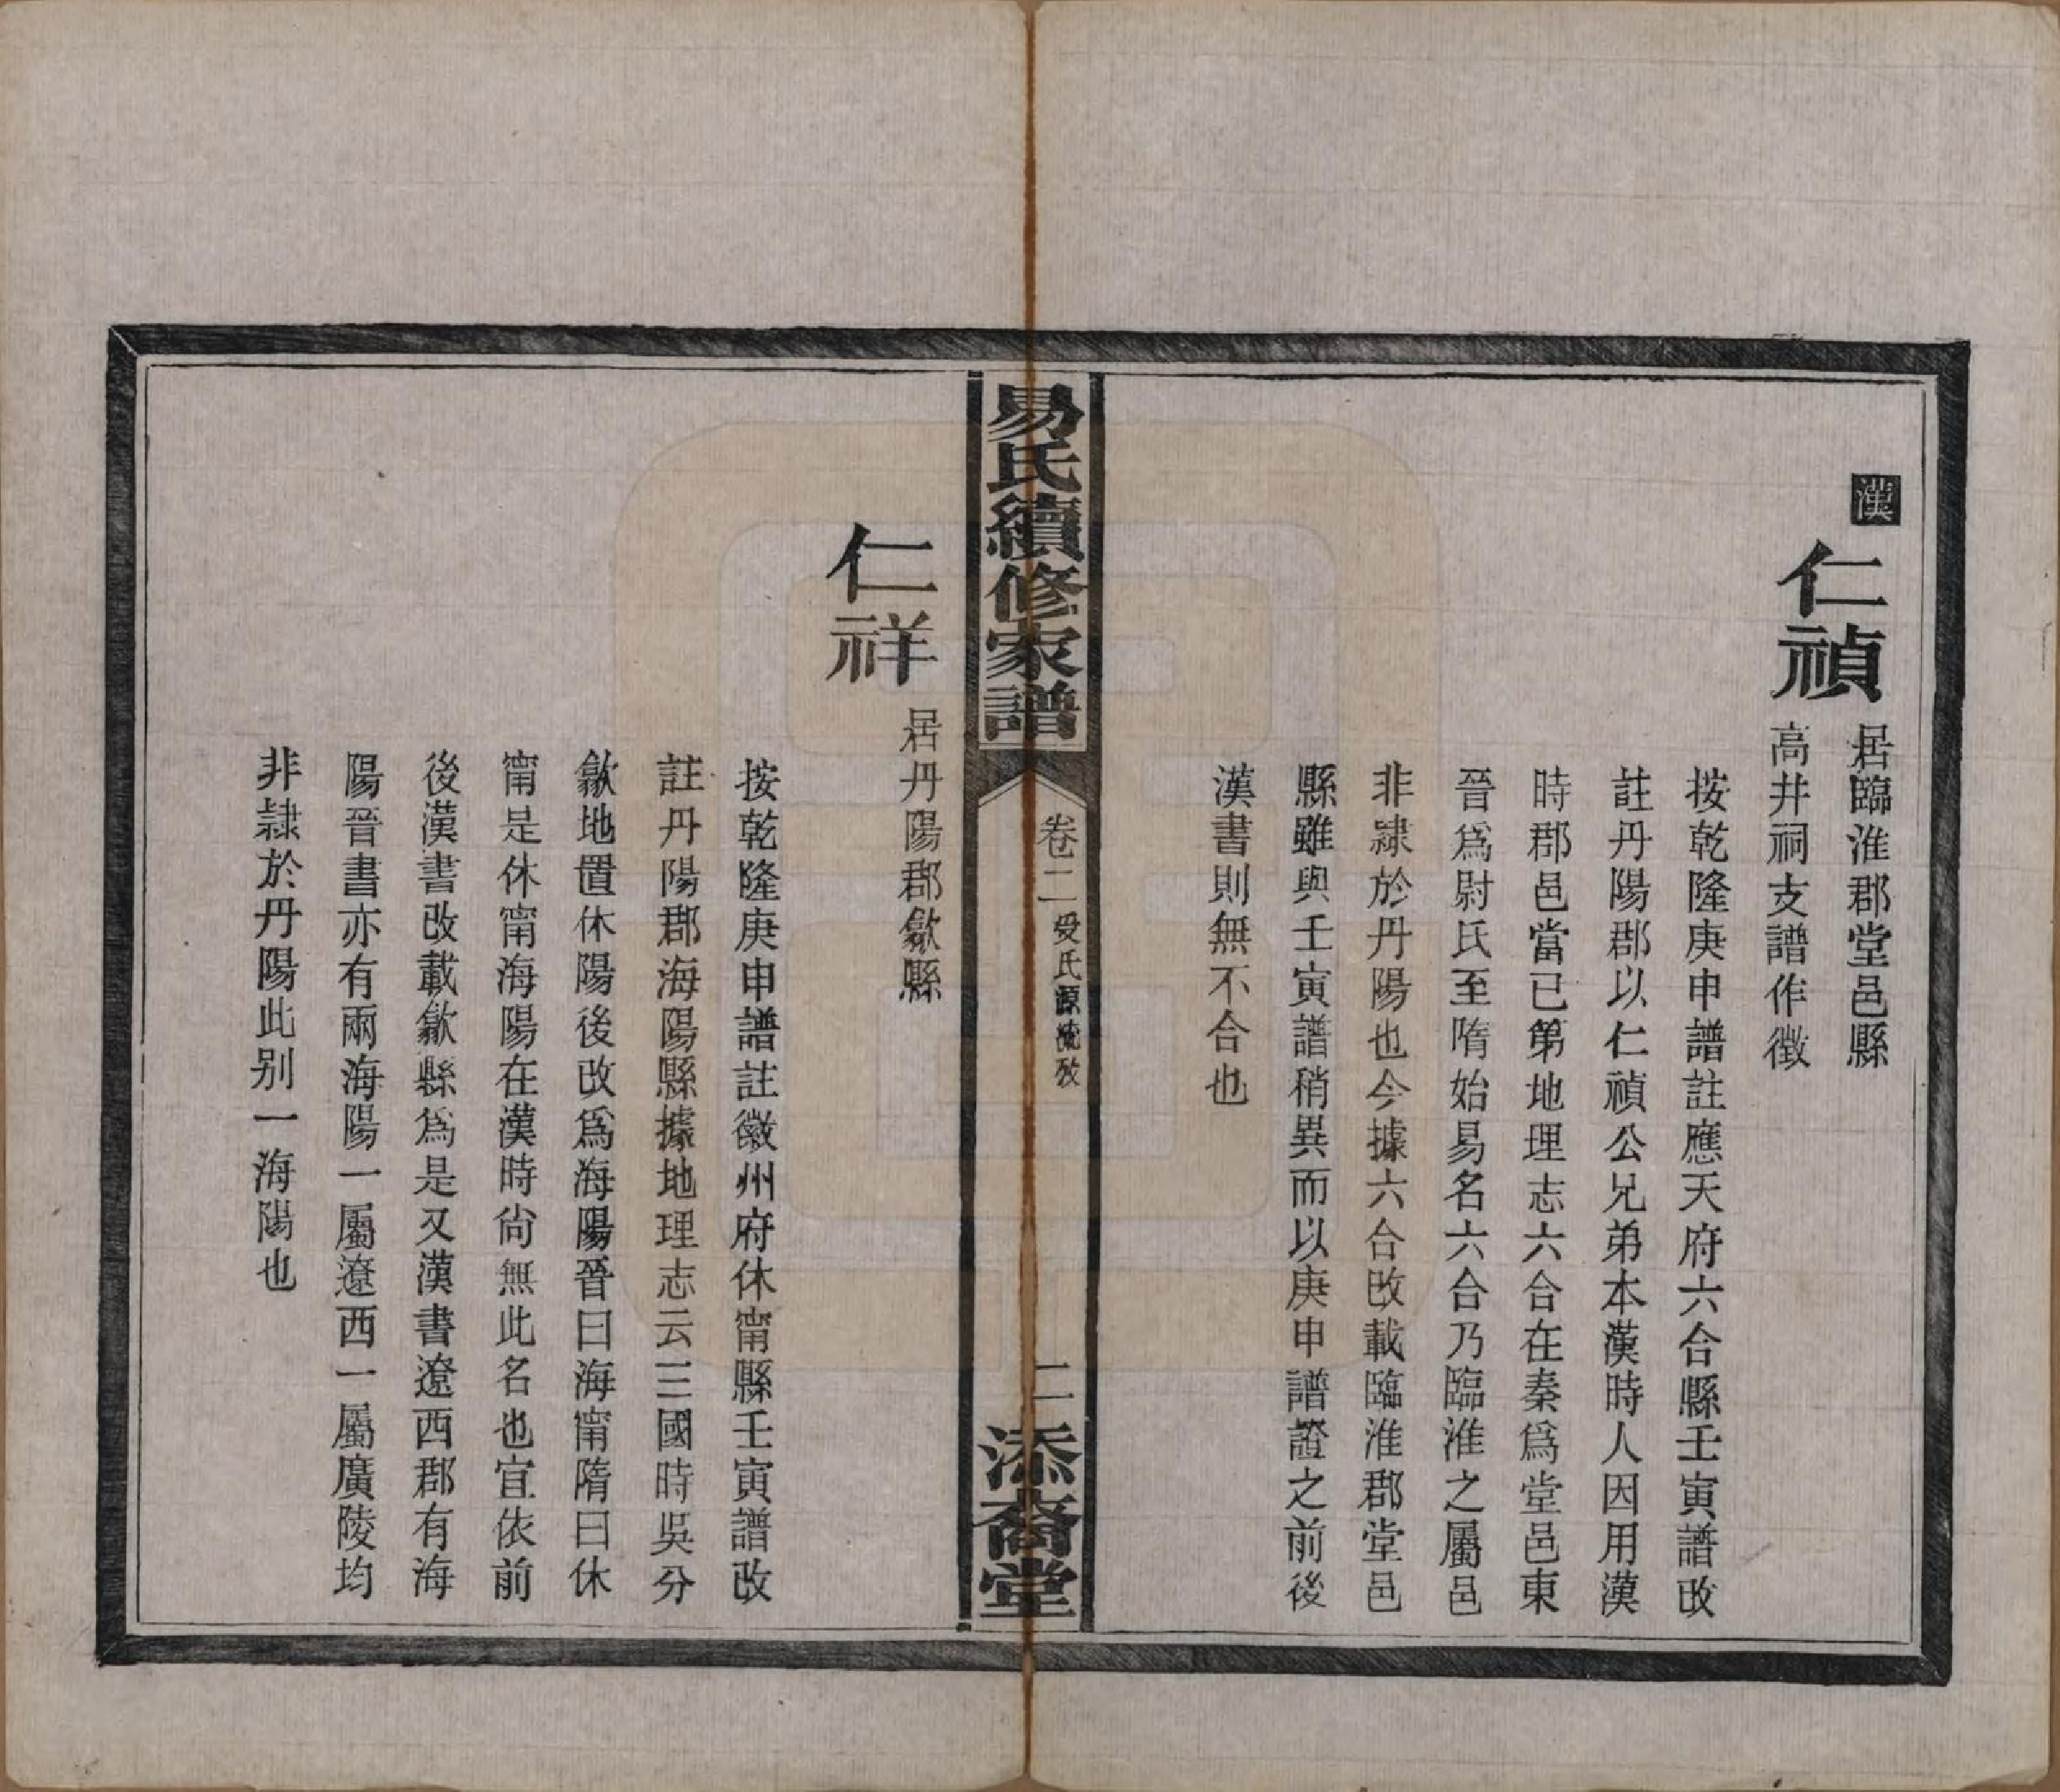 漢
仁禎
居臨淮郡堂邑縣
高井祠支譜作徵
按乾隆庚申譜註應天府六合縣壬寅譜改
註丹陽郡以仁禎公兄弟本漢時人因用漢
時郡邑當已第地理志六合在秦為堂邑東
晉為尉氏至隋始易名六合乃臨淮之屬邑
非隷於丹陽也今據六合改載臨淮郡堂邑
縣雖與壬寅譜稍異而以庚申譜證之前後
漢書則無不合也
易氏續修家譜
卷二
受氏源流攷
二
添裔堂
仁祥
居丹陽郡歙縣
按乾隆庚申譜註徽州府休甯縣壬寅譜改
註丹陽郡海陽縣據地理志云三國時吳分
歙地置休陽後改為海陽晉曰海甯隋曰休
甯是休甯海陽在漢時尙無此名也宜依前
後漢書改載歙縣為是又漢書遼西郡有海
陽晉書亦有兩海陽一屬遼西一屬廣陵均
非隷於丹陽此別一海陽也